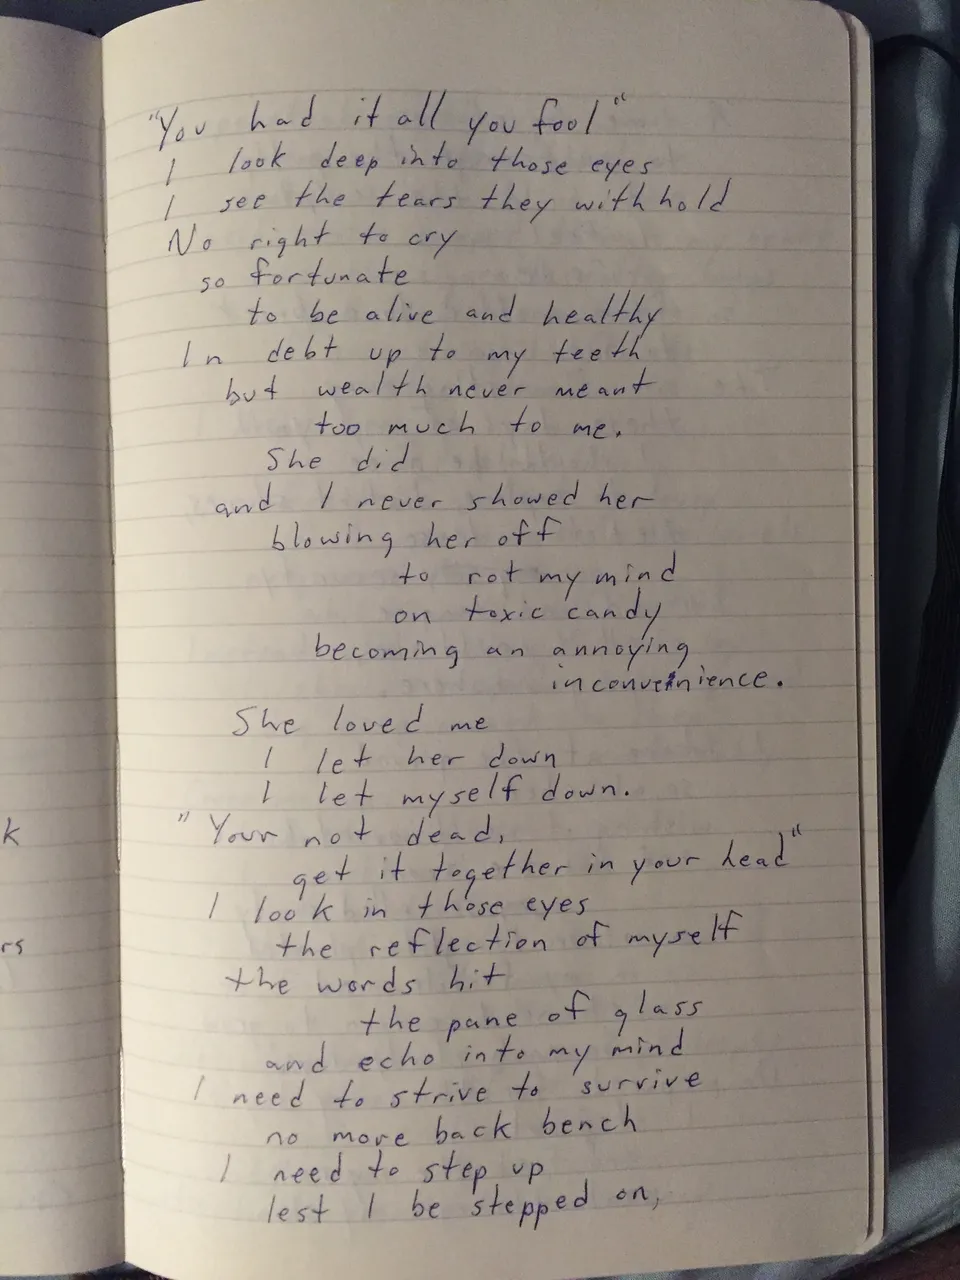 "You had it all you fool"
I look deep into those eyes
I see the tears they withhold
No right to cry
so fortunate
to be alive and healthy
In debt up to my teeth
but wealth never meant
too much to me.
She did
and I never showed her
blowing her off
to rot my mind
on toxic candy
becoming an annoying
inconvenience.
She loved me
I let her down
I let myself down.
"Your not dead,
get it together in your head"
I look in those eyes
the reflection of myself
the words hit
the pane of glass
and echo into my mind
I need to strive to survive
no more back bench
I need to step up
lest I be stepped on,
k
rs